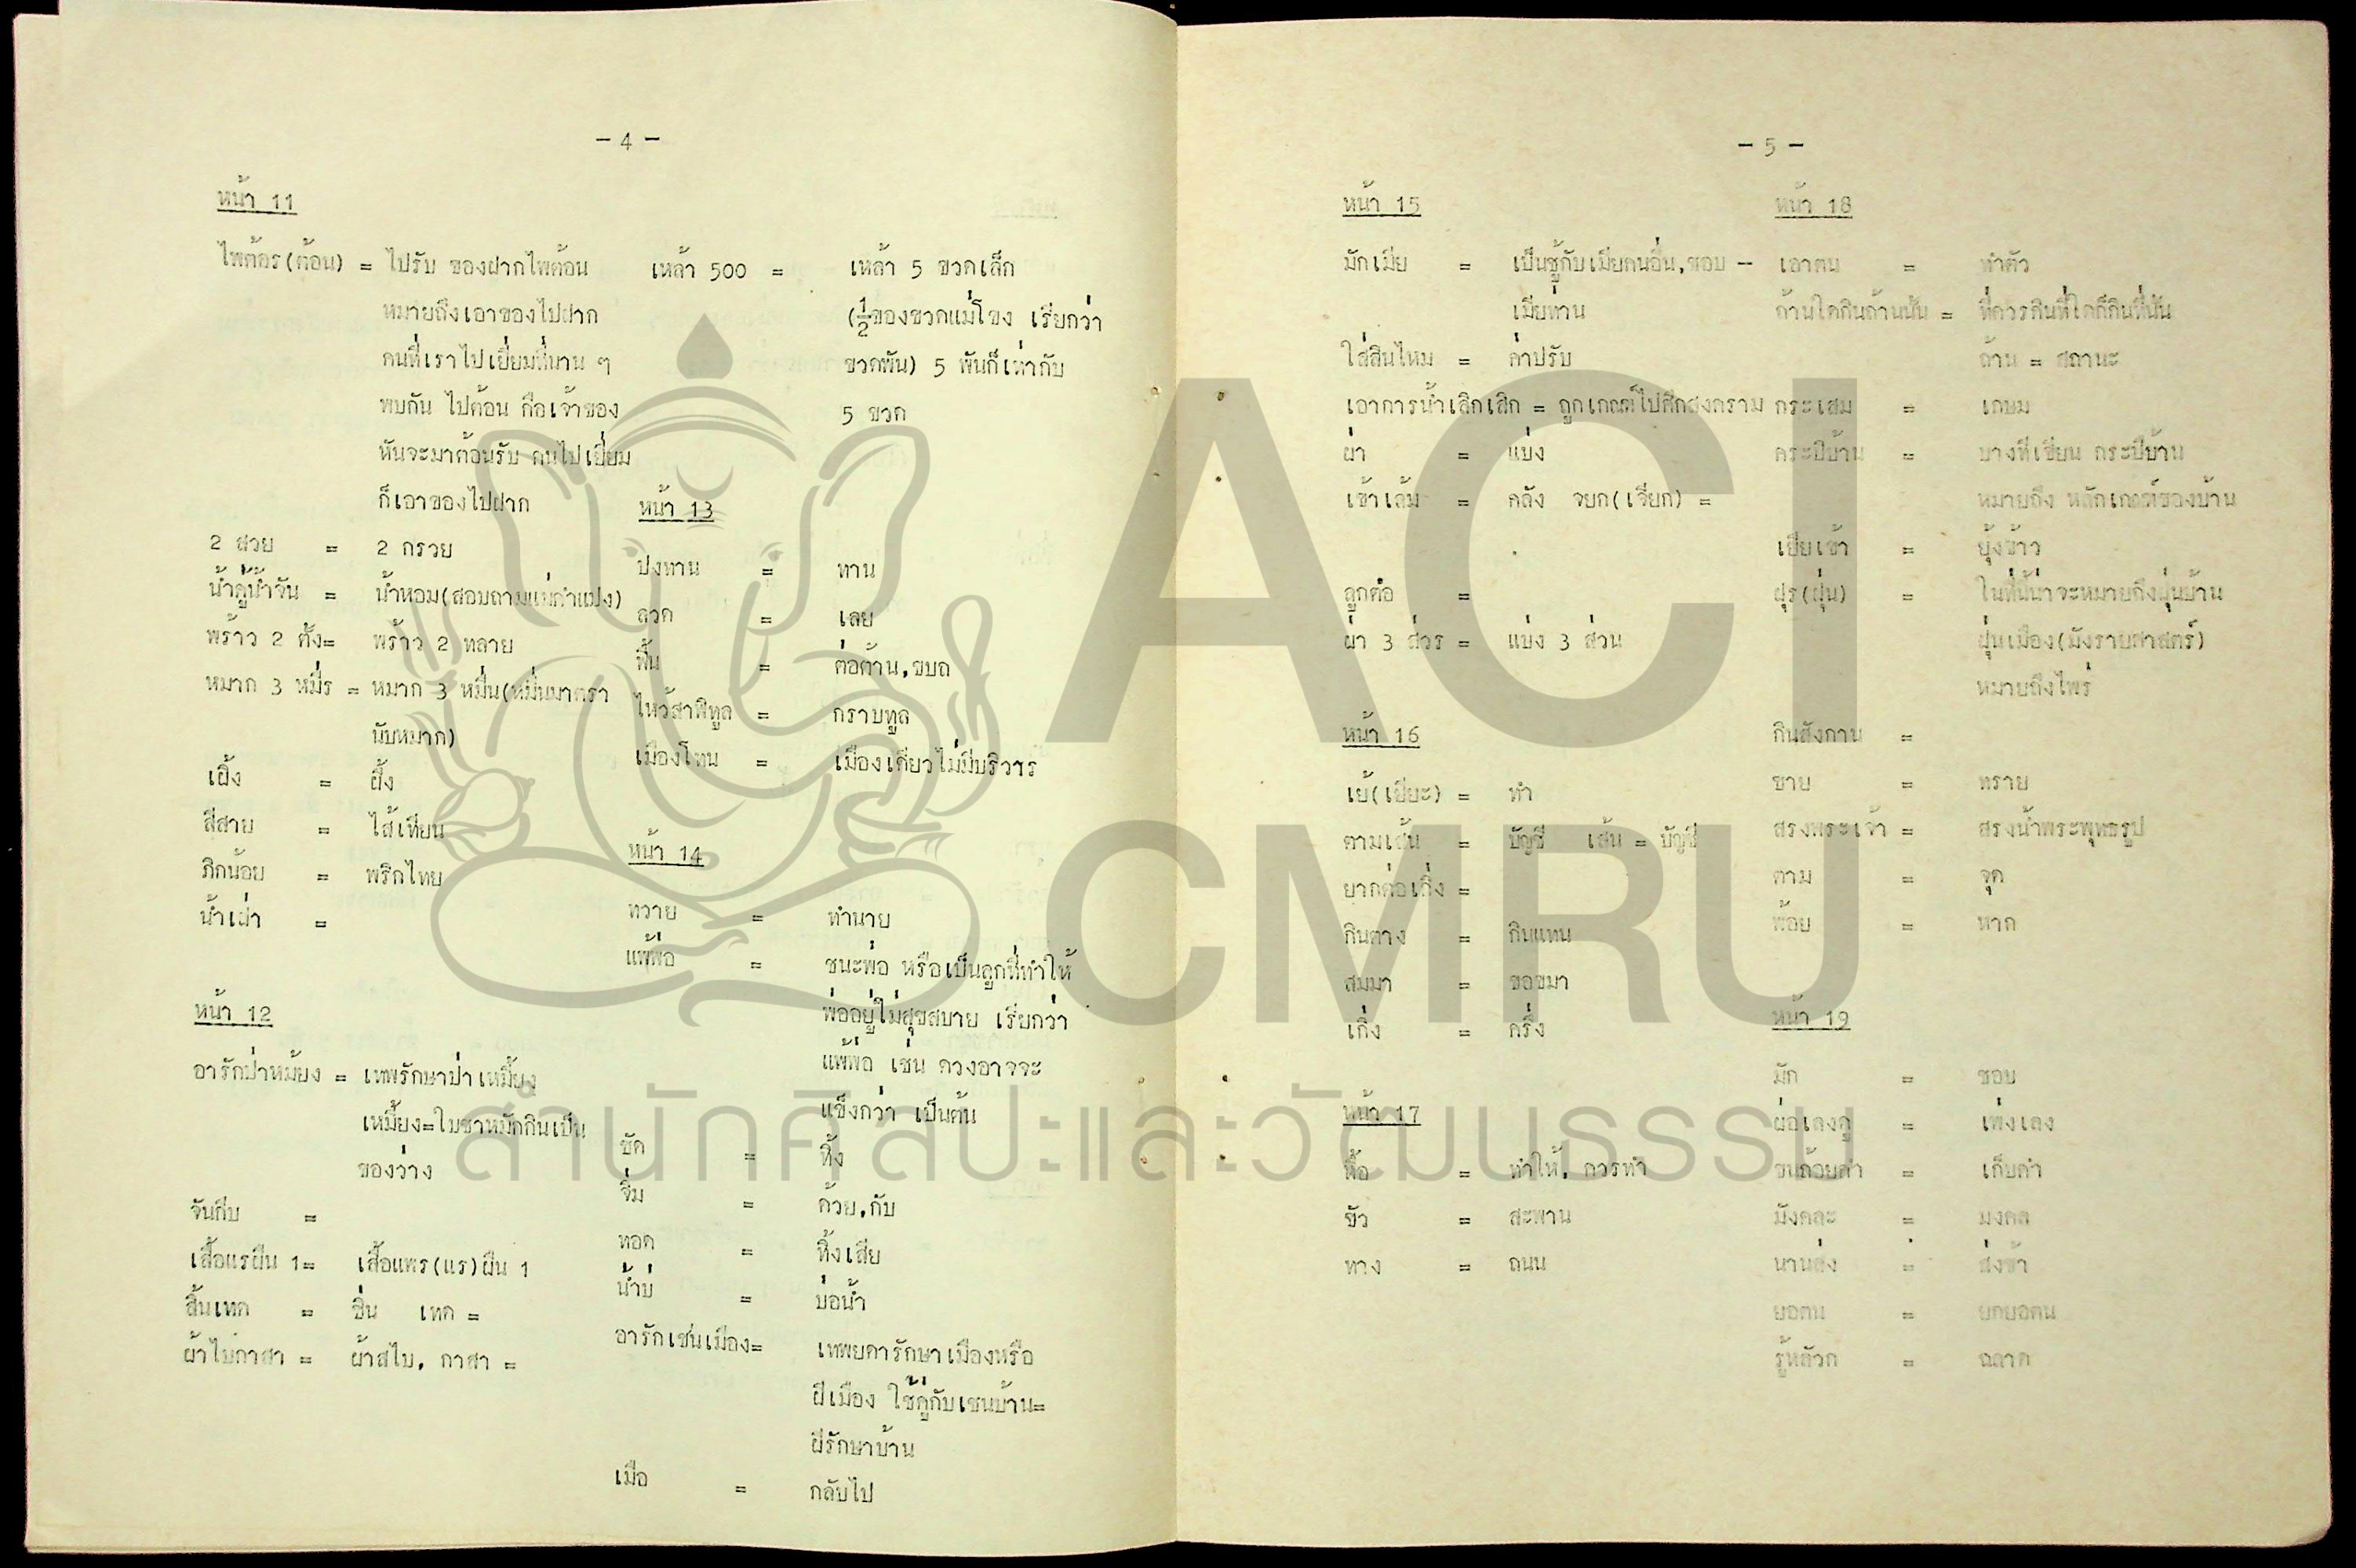 - 4 -
หน้า 11
ไพต้อร(ต้อน) = ไปรับ ของฝากไพต้อน
หมายถึงเอาของไปฝาก
คนที่เราไปเยี่ยมที่นาน ๆ
พบกัน ไปต้อน คือเจ้าของ
หันจะมาต้อนรับ คนไปเยี่ยม
ก็เอาของไปฝาก
2 สวย = 2 กรวย
น้ำคู้น้ำจัน = น้ำหอม(สอบถามแม่กำแปง)
พร้าว 2 ตั้ง= พร้าว 2 ทลาย
หมาก 3 หมื่ร = หมาก 3 หมื่น(หมื่นมาตรา
นับหมาก)
เผิ้ง = ผึ้ง
สีสาย = ไส้เทียน
ภิกน้อย = พริกไทย
น้ำเผ่า =
หน้า 12
อารักป่าหม้ยง = เทพรักษาป่าเหมี้ยง
เหมี้ยง=ใบชาหมักกินเป็น
ของว่าง
จันกีบ =
เสื้อแรผืน 1= เสื้อแพร(แร)ผืน 1
สิ้นเทค = ซิ่น เทค =
ผ้าไบกาสา = ผ้าสไบ, กาสา =
เหล้า 500 = เหล้า 5 ขวดเล็ก
(½ของขวดแม่โขง เรียกว่า
ขวดพัน) 5 พันก็เท่ากับ
5 ขวด
หน้า 13
ปงทาน = ทาน
ลวด = เลย
ฟื้น = ต่อต้าน,ขบถ
ไหว้สาพิทูล = กราบทูล
เมืองโทน = เมืองเดียวไม่มีบริวาร
หน้า 14
ทวาย = ทำนาย
แพ้พ่อ = ชนะพ่อ หรือเป็นลูกที่ทำให้
พ่ออยู่ไม่สุขสบาย เรียกว่า
แพ้พ่อ เช่น ดวงอาจจะ
แข็งกว่า เป็นต้น
ซัด = ทิ้ง
จิ่ม = ด้วย,กับ
ทอด = ทิ้งเสีย
น้ำบ่ = บ่อน้ำ
อารักเชนเมือง= เทพยดารักษาเมืองหรือ
ผีเมือง ใช้คู่กับเชนบ้าน=
ผีรักษาบ้าน
เมือ = กลับไป
- 5 -
หน้า 15
มักเมีย = เป็นชู้กับเมียคนอื่น,ชอบ -
เมียท่าน
ใส่สินไหม = ค่าปรับ
เอาการน้ำเลิกเสิก = ถูกเกณฑ์ไปศึกสงคราม
ผ่า = แบ่ง
เข้าเล้ม = คลัง จยก(เจียก) =
ลูกต่อ =
ผ่า 3 ส่วร = แบ่ง 3 ส่วน
หน้า 16
เย้(เปียะ) = ทำ
ตามเส้น = บัญชี เส้น = บัญชี
ยากต่อเถิ่ง =
กินตาง = กินแทน
สมมา = ขอขมา
เกิ่ง = ครึ่ง
หน้า 17
หื้อ = ทำให้, ควรทำ
ขัว = สะพาน
ทาง = ถนน
หน้า 18
เอาตน = ทำตัว
ถ้านใดกินถ้านนั้น = ที่ควรกินที่ใดก็กินที่นั้น
ถ้าน = สถานะ
กระเสม = เกษม
คระปีบ้าน = บางทีเขียน กระปีบ้าน
หมายถึง หลักเกณฑ์ของบ้าน
เยียเข้า = ยุ้งข้าว
ฝุร(ฝุ่น) = ในที่นี้น่าจะหมายถึงฝุ่นบ้าน
ฝุ่นเมือง(มังรายศาสตร์)
หมายถึงไพร่
กินสังถาน =
ซาย = ทราย
สรงพระเจ้า = สรงน้ำพระพุทธรูป
ตาม = จุด
พ้อย = หาก
หน้า 19
มัก = ชอบ
ผ่อเลงดู = เพ่งเลง
ขนถ้อยคำ = เก็บคำ
มังคละ = มงคล
นานส่ง = ส่งช้า
ยอตน = ยกยอตน
รู้หลัวก = ฉลาด
ACI
CMRU
สำนักศิลปะและวัฒนธรรม